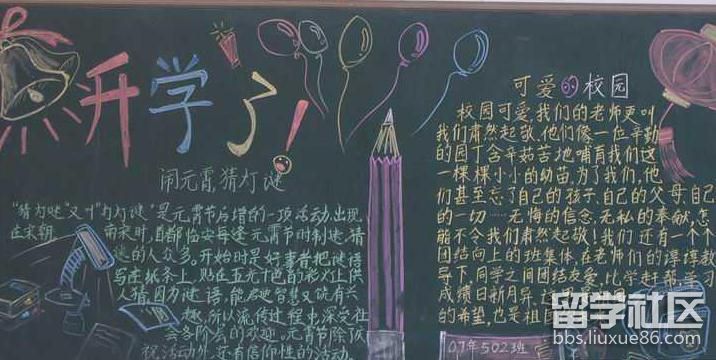 开学了!
闹元宵,猜灯谜
"猜灯谜"又叫"打灯谜"是元宵节后增的一项活动,出现
在宋朝。南宋时,首都临安每逢元宵节时制谜,猜
谜的人众多。开始时是好事者把谜语
写在纸条上,贴在五光十色的彩灯上供
人猜。因为谜语,能启迪智慧又饶有兴
趣,所以流传过程中深受社
会各阶层的欢迎。元宵节除庆
祝活动外,还有信仰性的活动。
可爱的校园
校园可爱,我们的老师更叫
我们肃然起敬,他们像一位辛勤
的园丁含辛茹苦地哺育我们这
一棵棵小小的幼苗,为了我们,他
们甚至忘了自己的孩子、自己的父母、自己
的一切……无悔的信念,无私的奉献,怎
能不令我们肃然起敬!我们还有一个个
团结向上的班集体,在老师们的谆谆教
导下,同学之间团结友爱,比学赶帮,学习
成绩日新月异。
的希望,也是祖国
07年502班
留学社区
bbs.liuxue86.com